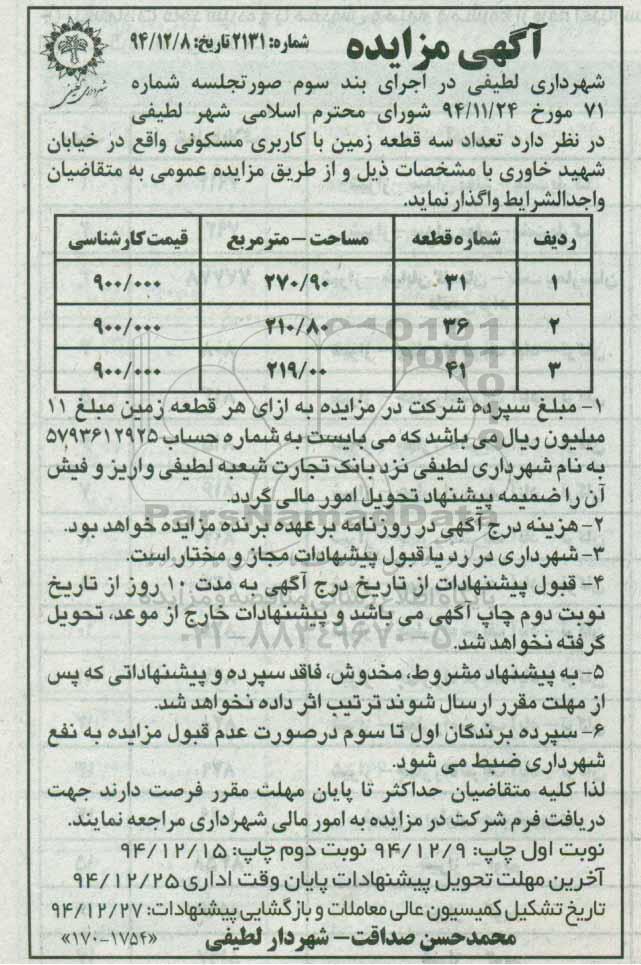 آگهی مزایده
شماره: ۲۱۳۱ تاریخ: ۹۴/۱۲/۸
شهرداری لطیفی
شهرداری لطیفی در اجرای بند سوم صورتجلسه شماره
۷۱ مورخ ۹۴/۱۱/۲۴ شورای محترم اسلامی شهر لطیفی
در نظر دارد تعداد سه قطعه زمین با کاربری مسکونی واقع در خیابان
شهید خاوری با مشخصات ذیل و از طریق مزایده عمومی به متقاضیان
واجدالشرایط واگذار نماید.
ردیف شماره قطعه مساحت – مترمربع قیمت کارشناسی
۱ ۳۱ ۲۷۰/۹۰ ۹۰۰/۰۰۰
۲ ۳۶ ۲۱۰/۸۰ ۹۰۰/۰۰۰
۳ ۴۱ ۲۱۹/۰۰ ۹۰۰/۰۰۰
۱- مبلغ سپرده شرکت در مزایده به ازای هر قطعه زمین مبلغ ۱۱
میلیون ریال می باشد که می بایست به شماره حساب ۵۷۹۳۶۱۲۹۲۵
به نام شهرداری لطیفی نزد بانک تجارت شعبه لطیفی واریز و فیش
آن را ضمیمه پیشنهاد تحویل امور مالی گردد.
۲- هزینه درج آگهی در روزنامه بر عهده برنده مزایده خواهد بود.
۳- شهرداری در رد یا قبول پیشنهادات مجاز و مختار است.
۴- قبول پیشنهادات از تاریخ درج آگهی به مدت ۱۰ روز از تاریخ
نوبت دوم چاپ آگهی می باشد و پیشنهادات خارج از موعد، تحویل
گرفته نخواهد شد.
۵- به پیشنهاد مشروط، مخدوش، فاقد سپرده و پیشنهاداتی که پس
از مهلت مقرر ارسال شوند ترتیب اثر داده نخواهد شد.
۶- سپرده برندگان اول تا سوم درصورت عدم قبول مزایده به نفع
شهرداری ضبط می شود.
لذا کلیه متقاضیان حداکثر تا پایان مهلت مقرر فرصت دارند جهت
دریافت فرم شرکت در مزایده به امور مالی شهرداری مراجعه نمایند.
نوبت اول چاپ: ۹۴/۱۲/۹ نوبت دوم چاپ: ۹۴/۱۲/۱۵
آخرین مهلت تحویل پیشنهادات پایان وقت اداری ۹۴/۱۲/۲۵
تاریخ تشکیل کمیسیون عالی معاملات و بازگشایی پیشنهادات: ۹۴/۱۲/۲۷
محمدحسن صداقت – شهردار لطیفی
«۱۷۰-۱۷۵۴»
ParsNamadData